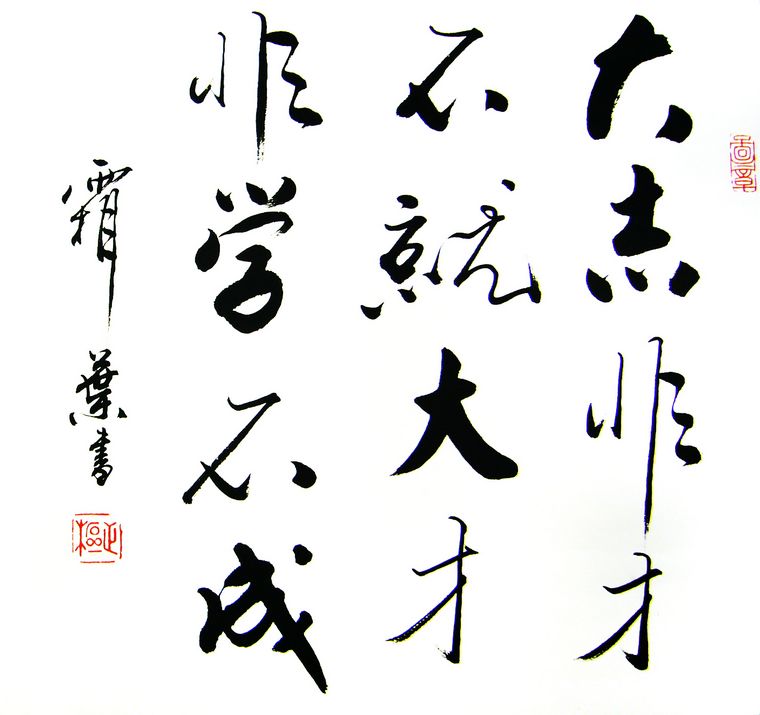 大志非才
不就大才
非学不成
霜葉書